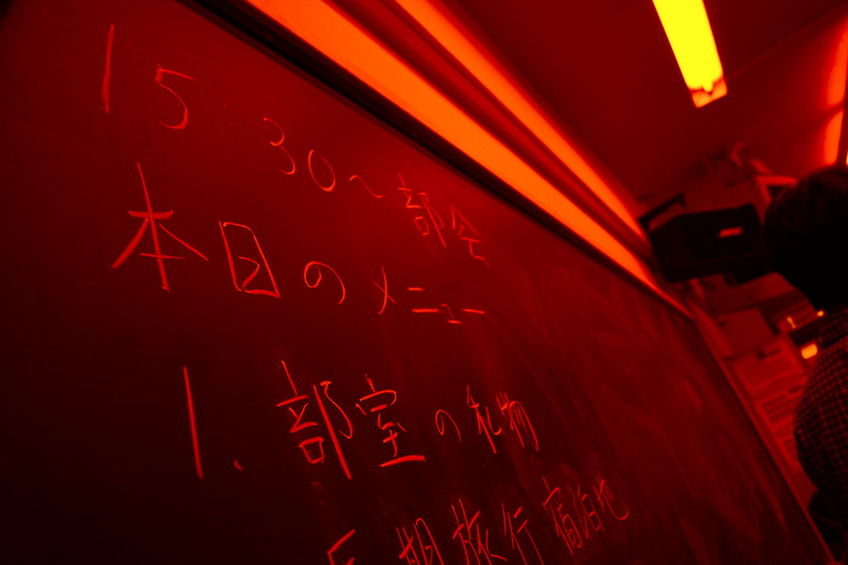 15:30～部会
本日のメニュー
1. 部室の私物
期旅行宿泊地